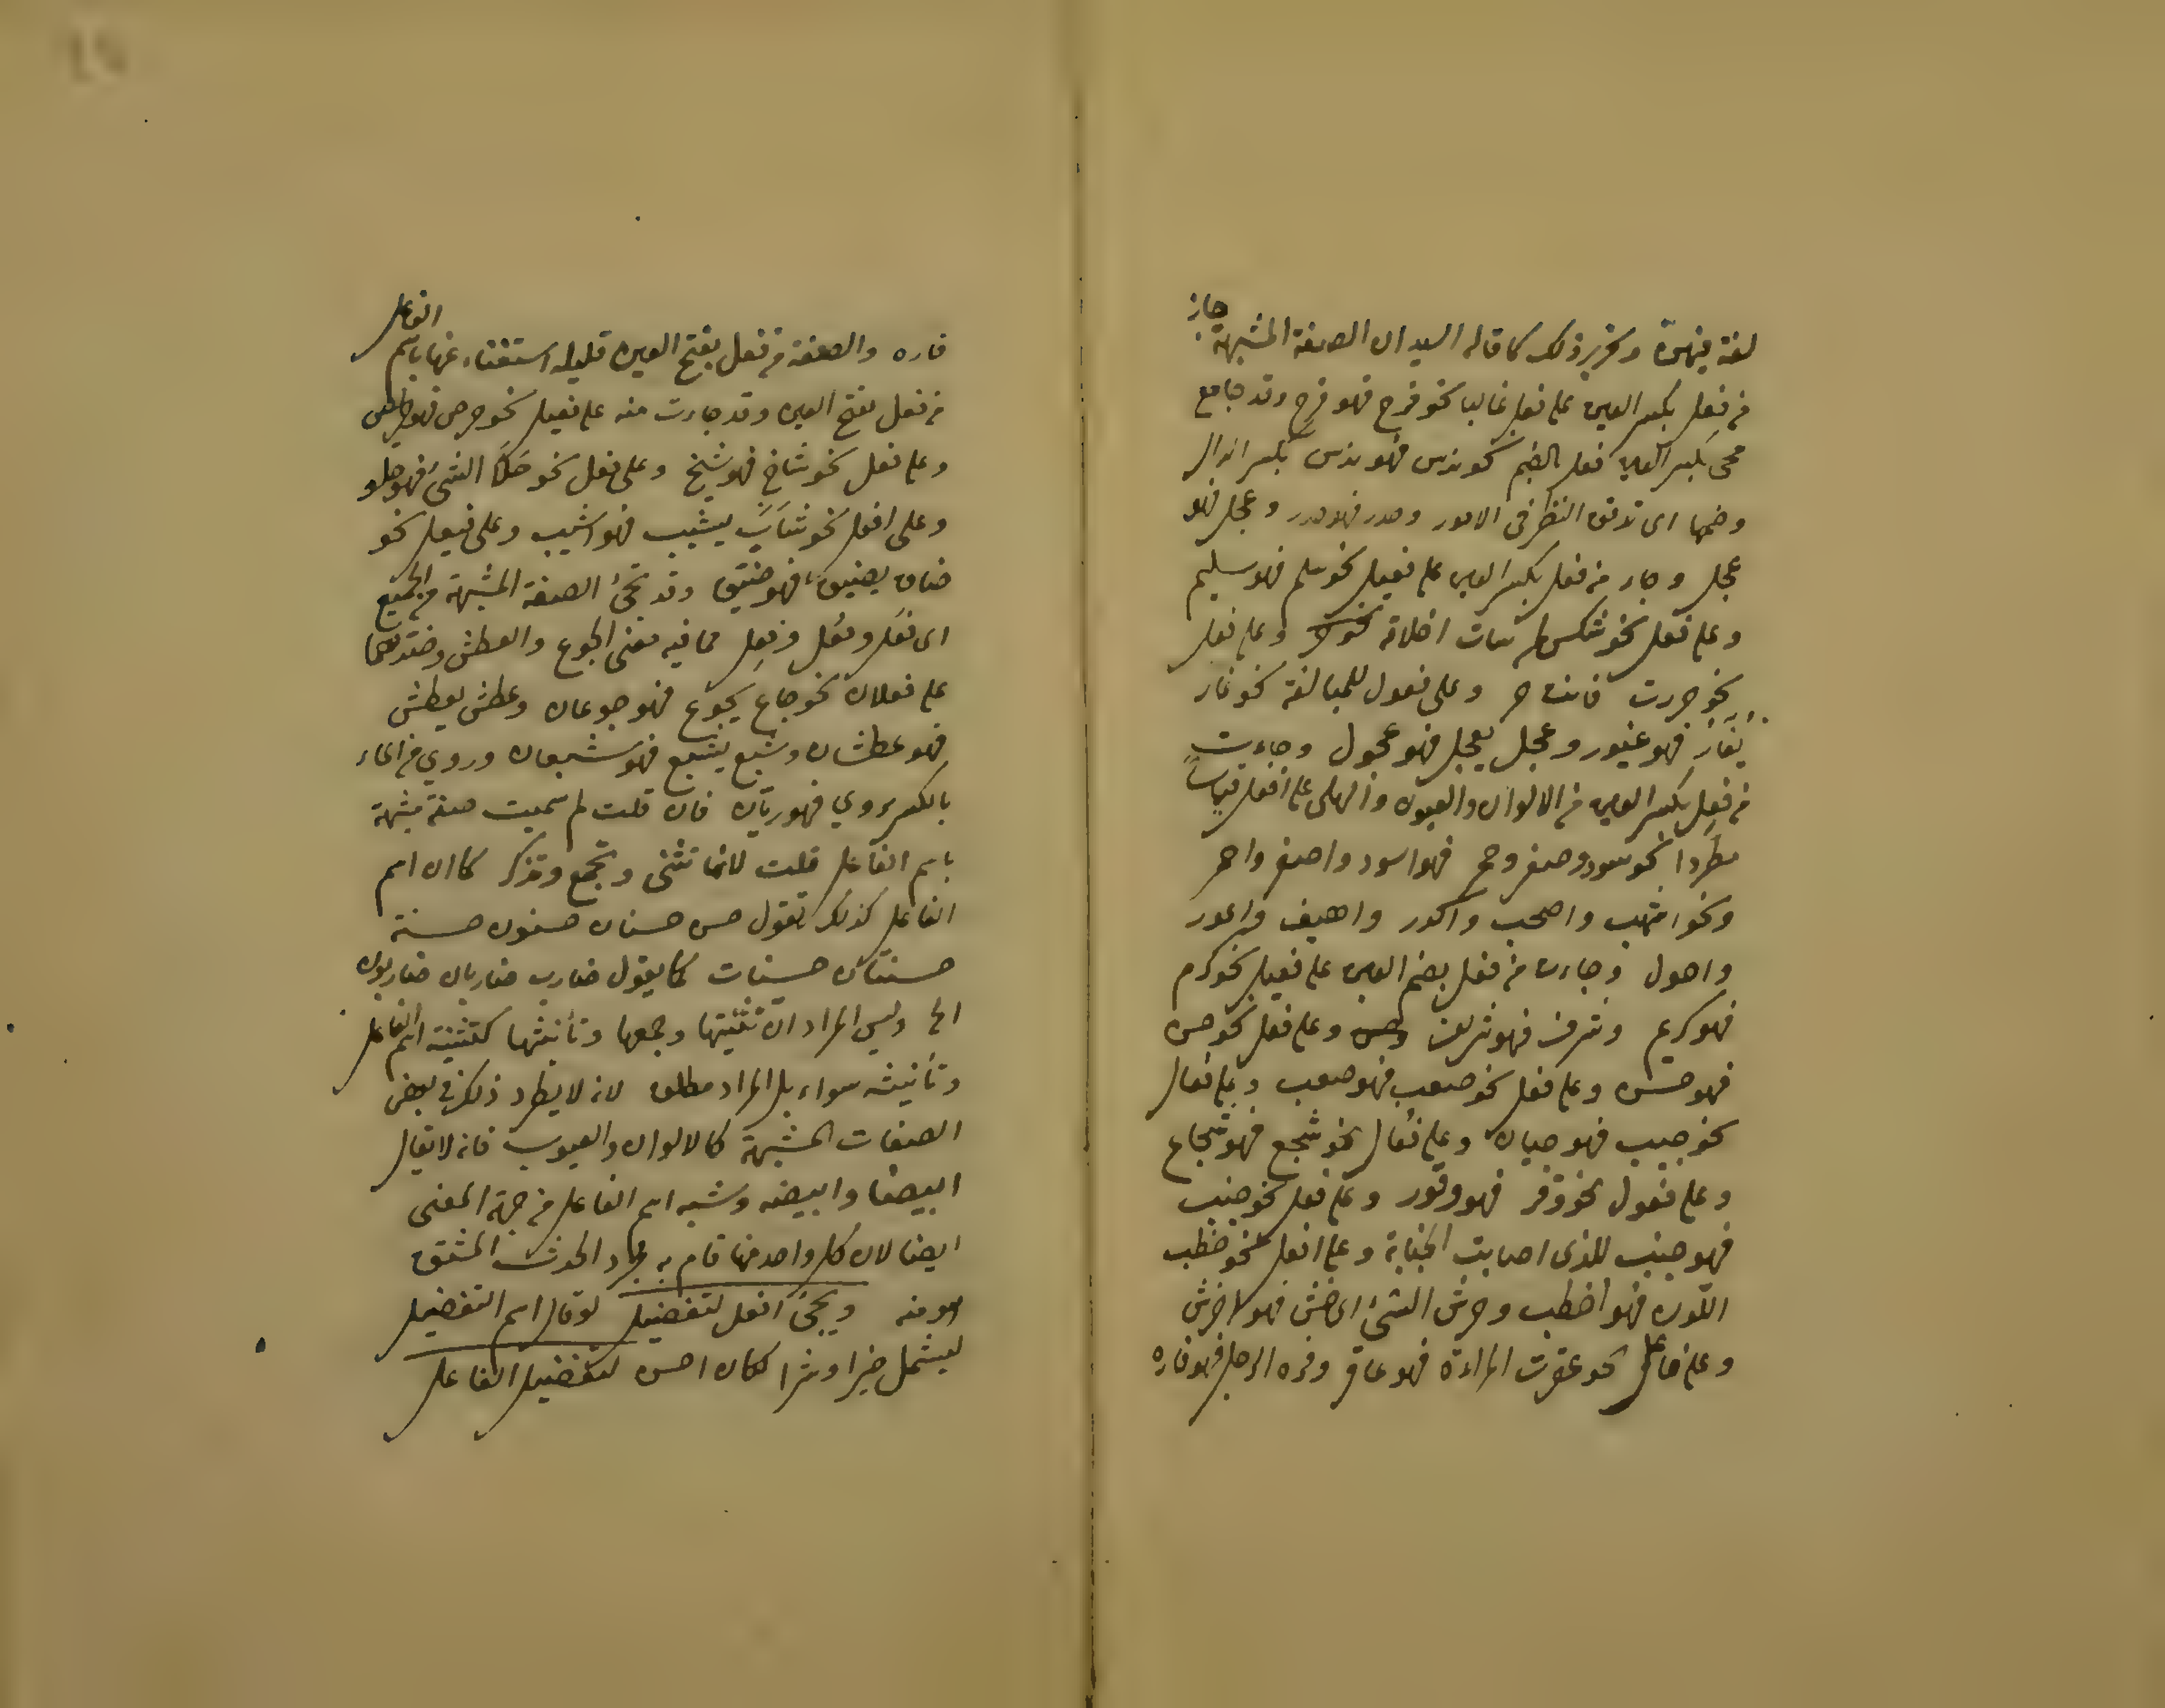 لغة فيهنّ وتحرير ذلك كما قاله السيد ان الصفة المشبهة جاز
من فعِل بكسر العين على فعل غالبا نحو فرح فهو فرح وقد جا مع
مجئ بكسر العين فعل بالضم نحو ندس فهو ندس بكسر الدال
وضمها اى تدقق النظر فى الامور وحدر فهو حدر وعجل فهو
عجل وجاء من فعل بكسر العين على فعيل نحو سلم فهو سليم
وعلى فعل نحو شكس اخلاقه وعلى فعل
نحو حررت فانت حر وعلى فعول للمبالغة نحو غار
يَغَارُ فهو غيور وعجل يعجل فهو عجول وجاءت
من فعِل بكسر العين من الالوان والعيوب والحلى على افعل قياساً
مطردا نحو سود وصفر وحمر فهو اسود واصفر واحمر
ونحو اشهب واصحب واكدر واهيف واعور
واحول وجاءت من فعل بضم العين على فعيل نحو كرم
فهو كريم وشرف فهو شريف وعلى فعل نحو حسن
فهو حسن وعلى فعل نحو صعب فهو صعب وعلى فعال
نحو جبن فهو جبان وعلى فُعال نحو شجع فهو شجاع
وعلى فعول نحو وقر فهو وقور وعلى فعل نحو جنب
فهو جنب للذى اصابته الجنابة وعلى افعل نحو خطب
اللون فهو اخطب وحرش الشئ اى خشن فهو احرش
وعلى فاعل نحو عقرت المراءة فهو عاقر وفره الرجل فهو فاره
فاره والصفة من فعل بفتح العين قليله استغناء عنها باسم الفاعل
من فعل بفتح العين وقد جاءت منه على فعيل نحو حرص فهو حريص
وعلى فعل نحو شاخ فهو شيخ وعلى فعل نحو حَلَا الشئ فهو حلو
وعلى افعل نحو شَابَ يشيب فهو اشيب وعلى فيعل نحو
ضاق يضيق فهو ضيق وقد تجئ الصفة المشبهة من الجميع
اى فعَل وفعُل وفعِل مما فيه معنى الجوع والعطش وضدهما
على فعلان نحو جاع يجوع فهو جوعان وعطش يعطش
فهو عطشان وشبع يشبع فهو شبعان وروي من الماء
بالكسر يروي فهو ريّان فان قلت لم سميت صفة مشبهة
باسم الفاعل قلت لانها تثنى وتجمع وتذكر كما ان اسم
الفاعل كذلك تقول حسن حسنان حسنون حسنة
حسنتان حسنات كما يقول ضارب ضاربان ضاربون
الخ وليس المراد ان تثنيتها وجمعها وتأنيثها كتثنية اسم الفاعل
وتأنيثه سواء بل المراد مطلق لانه لا يطرد ذلك فى بعض
الصفات المشبهة كالالوان والعيوب فانه لا يقال
ابيضا وابيضه وشبه اسم الفاعل من جهة المعنى
ايضا لان كل واحد منها قام به الحدث المشتق
هو منه ويجئ افعل لتفضيل لو قال اسم التفضيل
ليشمل خيرا وشرا لكان احسن لتفضيل الفاعل